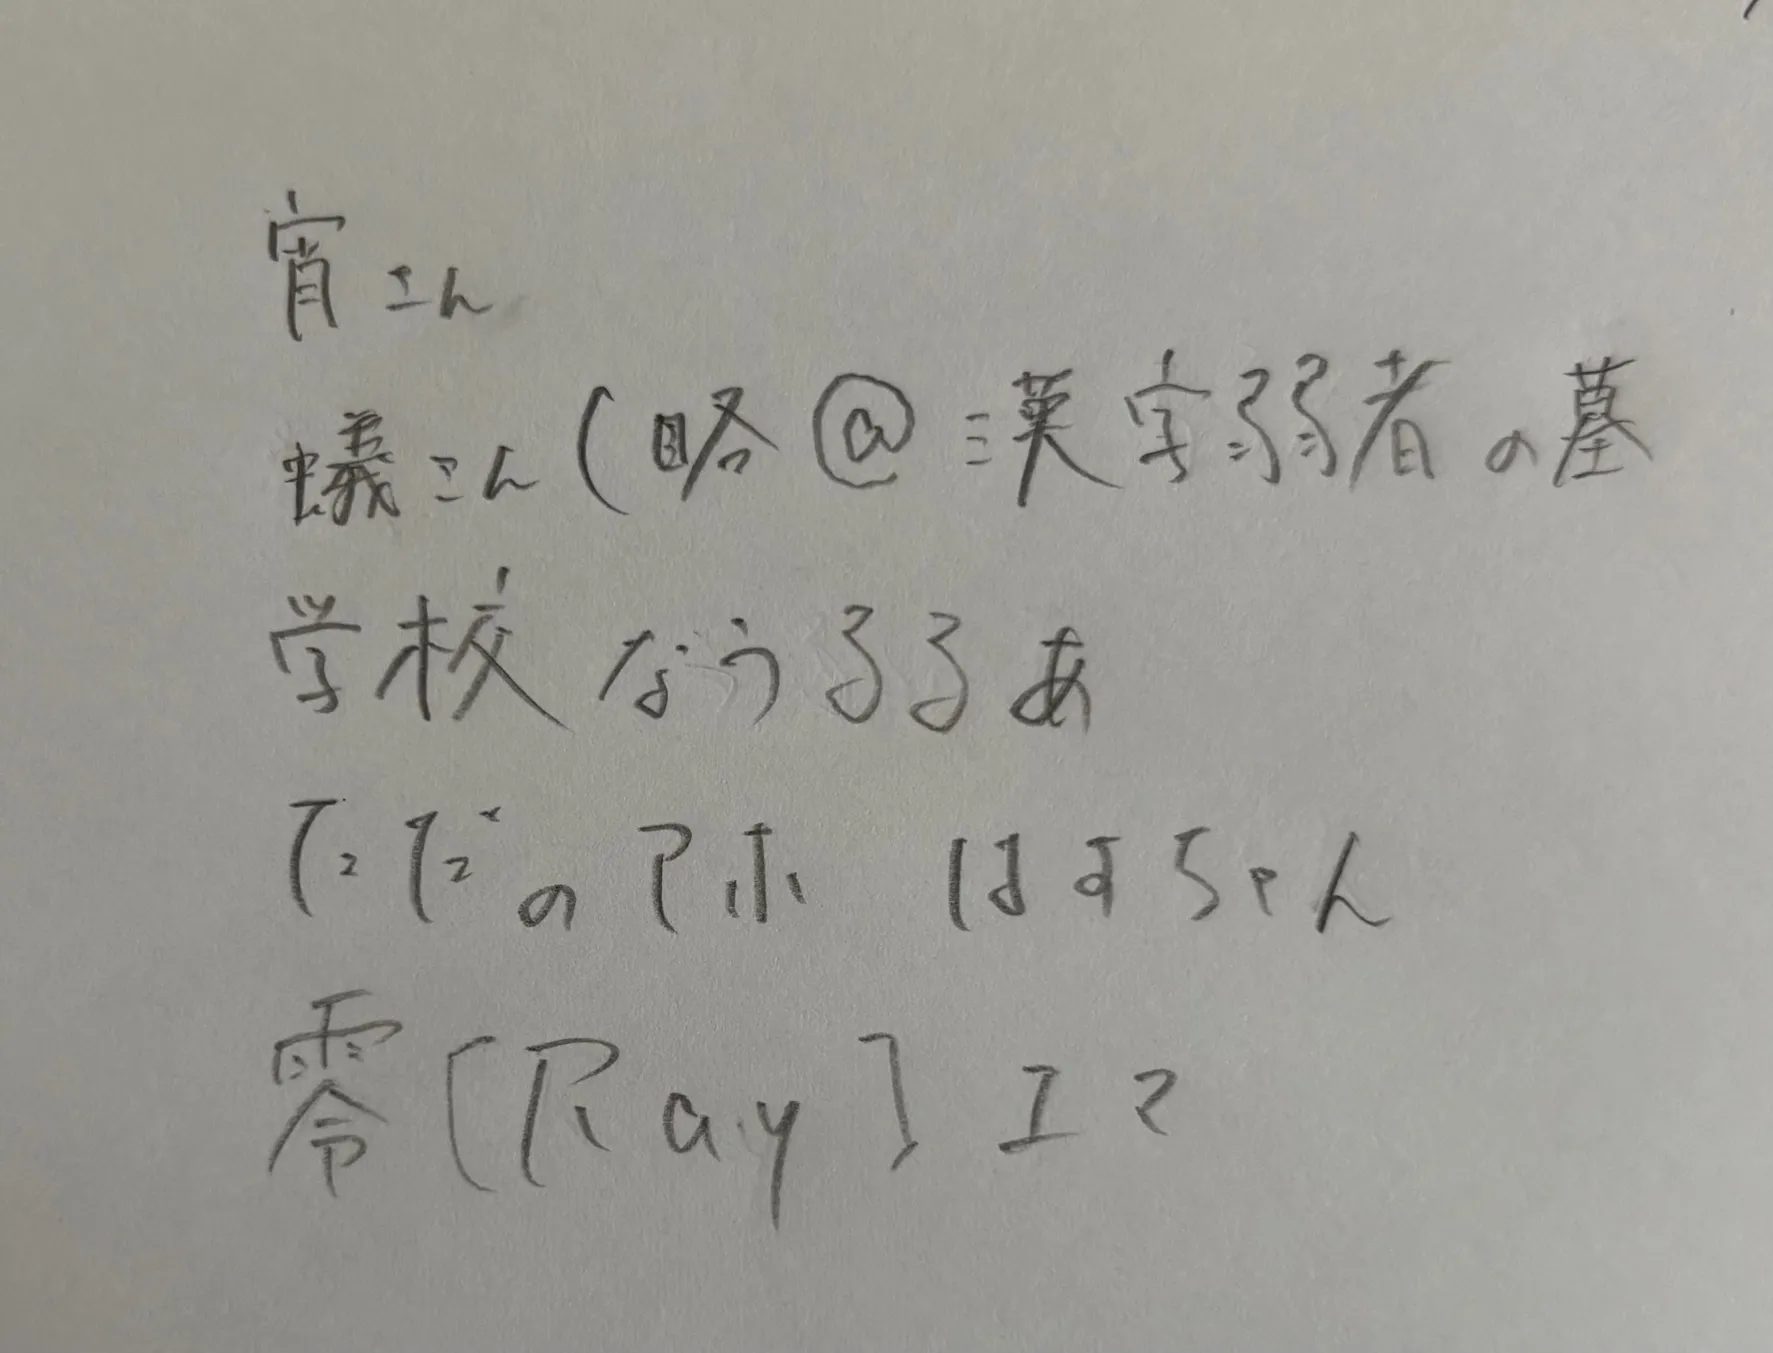 宵さん
蟻さん(略@漢字弱者の墓
学校なうるるあ
ただのアホ はすちゃん
零[Ray]エマ